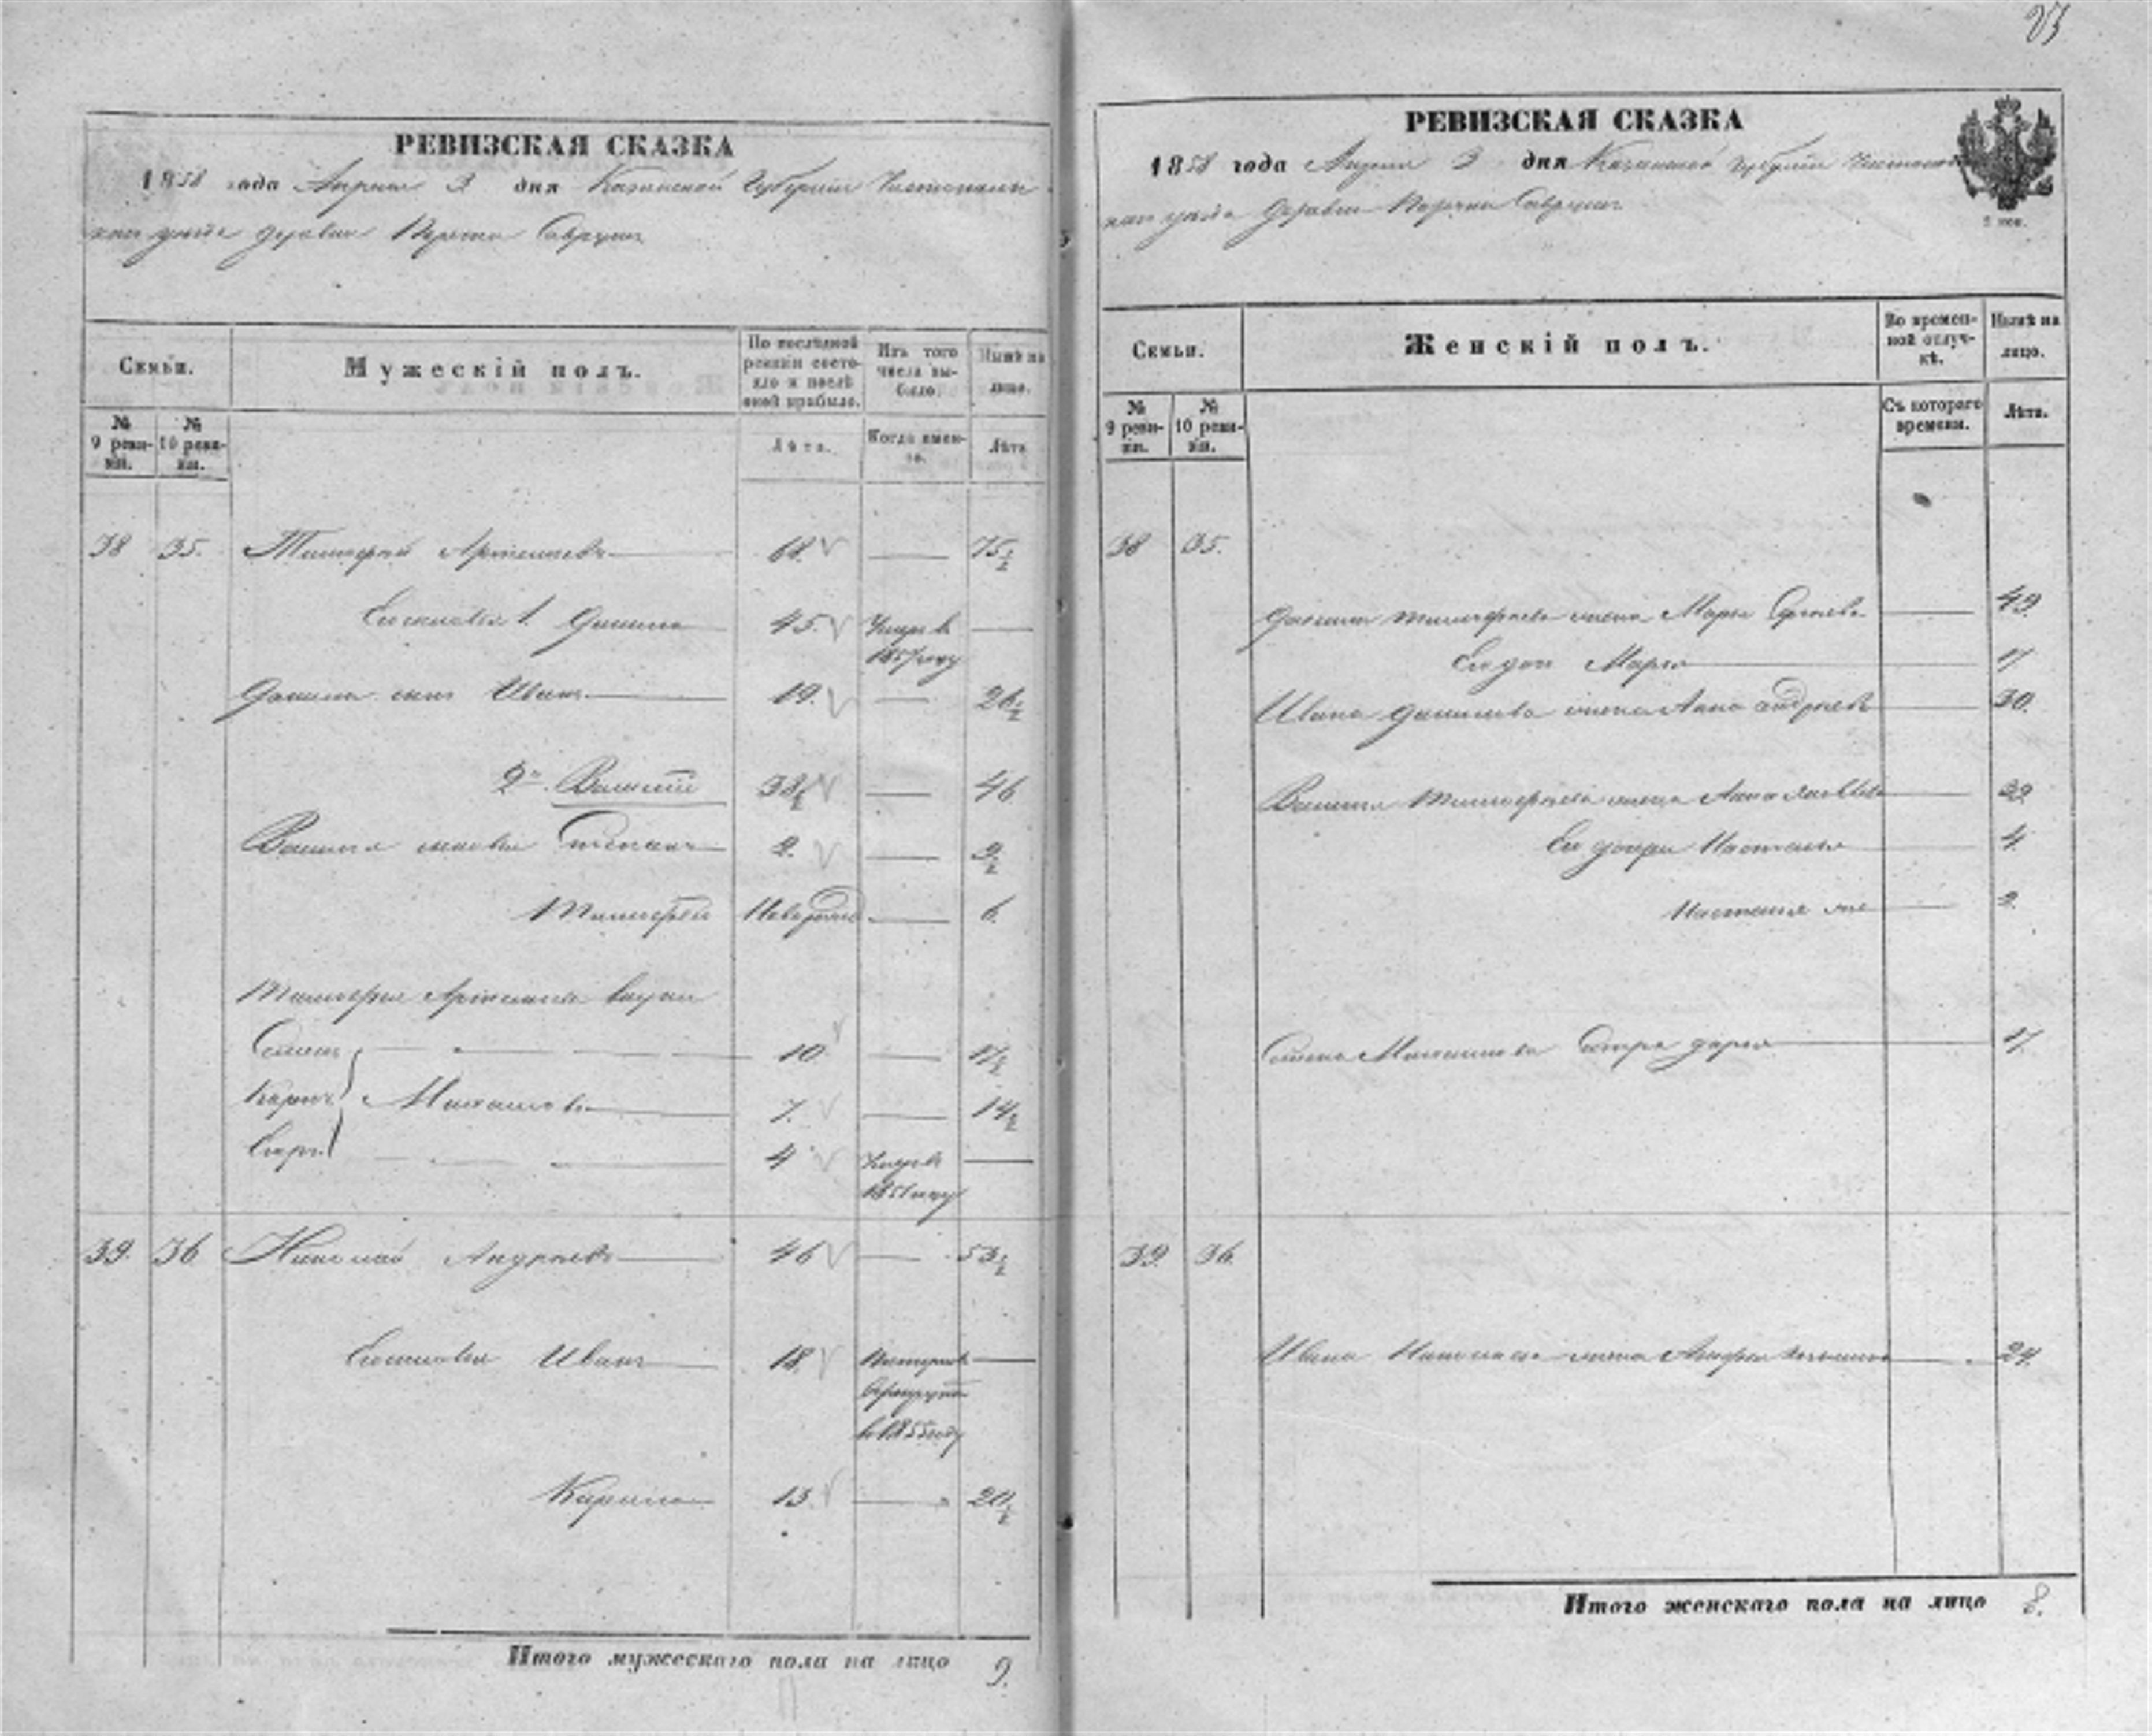 РЕВИЗСКАЯ СКАЗКА
1858 года Апреля 3 дня Казанской Губернiи Чистополь-
скаго уѣзда деревни
Семьи.
Мужескiй полъ.
По послѣдней ревизiи состояло и послѣ оной прибыло.
Изъ того числа выбыло.
Нынѣ на лицо.
№ 9 ревизiи.
№ 10 ревизiи.
Лѣта.
Когда именно.
Лѣта
38 35. Тимофей Артемьевъ 68. 75½
Его сыновья 1. Данила 45. Умеръ в 1857 году
Данилы сынъ Иванъ 19. 26½
2й. Василiй 38½ 46
Василья сыновья Степанъ 2. 9½
Тимофей Новорожд. 6.
Тимофея Артемьева внуки
Семенъ 10 17½
7. 14½
4 Умеръ в 1851 году
39. 36 Николай Андреевъ 46 53½
Его сыновья Иванъ 18. в рекруты в 1855 году
Кирила 13. 20½
Итого мужескаго пола на лицо 9.
РЕВИЗСКАЯ СКАЗКА
1858 года Апреля 3 дня Казанской Губернiи Чистополь-
скаго уѣзда деревни
2 коп.
Семьи.
Женскiй полъ.
Во временной отлучкѣ.
Нынѣ на лицо.
№ 9 ревизiи.
№ 10 ревизiи.
Съ котораго времени.
Лѣта.
38 35.
Данилы Тимофеева жена Марья 49.
Его дочь Марья 17
Ивана Данилова жена Анна Андреева 30.
Василья Тимофеева жена Анна 39.
Его дочери Настасья 4.
Настасья же 2.
Семена сестра Дарья 17.
39. 36.
Ивана Николаева жена 24.
Итого женскаго пола на лицо 8.